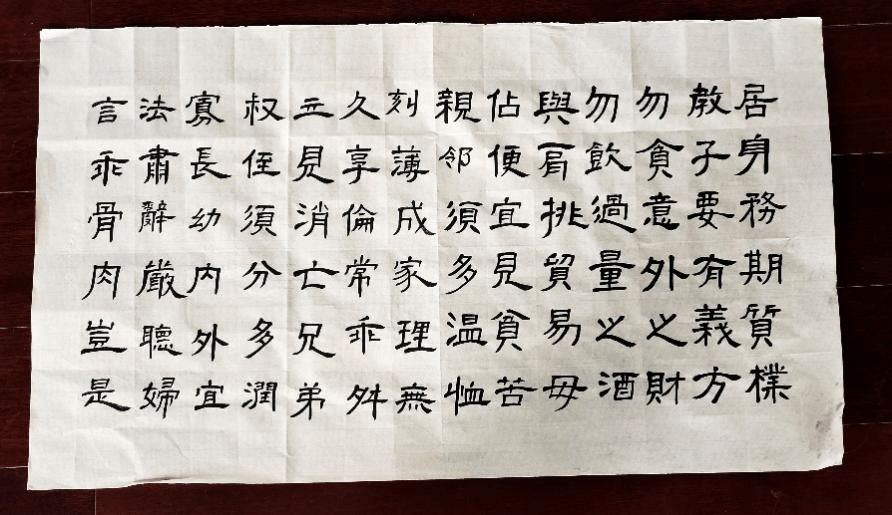 居身務期質樸
教子要有義方
勿貪意外之財
勿飲過量之酒
與肩挑貿易毋
佔便宜見貧苦
親邻須多温恤
刻薄成家理無
久享倫常乖舛
立見消亡兄弟
叔侄須分多潤
寡長幼内外宜
法肅辭嚴聽婦
言乖骨肉豈是